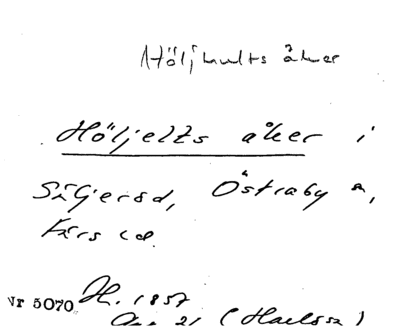 Höljhults åker
Höljelts åker i
Sågjersd, Östraby s,
Färs hd.
Nr 5070 H. 1857
21 (